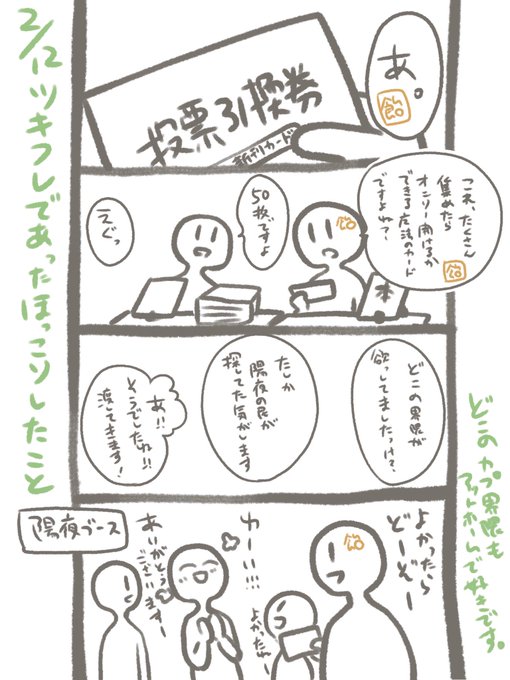 2/12ツキフレであったほっこりしたこと
あ。
飴
投票引換券
新刊カード
これ、たくさん
集めたら
オンリー開けるか
できる広法のカード
ですよね?
飴
飴
50枚、ですよ
えぐっ
どこの界隈が
欲っしてましたっけ?
たしか
陽夜の民が
探してた気がします
あ!!
そうでしたね!!
渡してきます!
陽夜ブース
よかったら
どーぞー
飴
わーい!!!
よかったねー
あいがとう
ございますー
どこのカプ界隈も
アットホームで好きです。